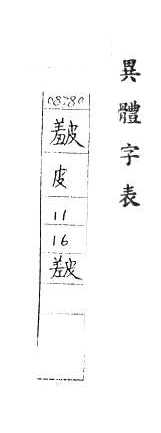 異體字表
08780
皮
11
16